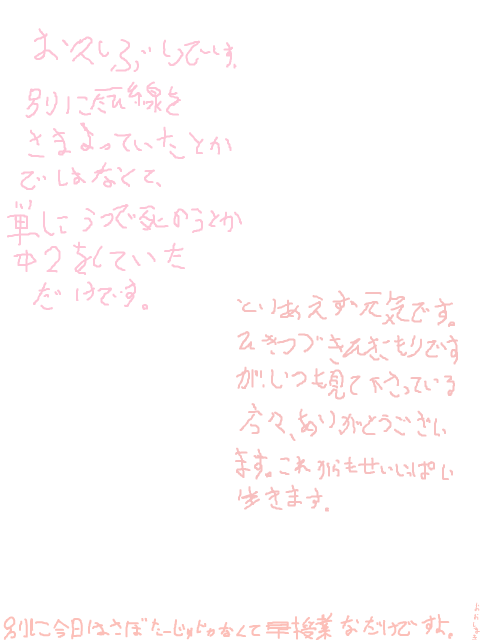 お久しぶしでーす。
別に死線を
さまよっていたとか
ではなくて、
単にうつで死のうとか
中2をしていた
だけです。
とりあえず元気です。
ひきつづきひきこもりです
が、いつも見て下さっている
方々、ありがとうござい
ます。これからもせいいっぱい
歩きます。
別に今日はさぼたーじゅとかなくて早授業なだけですよ。